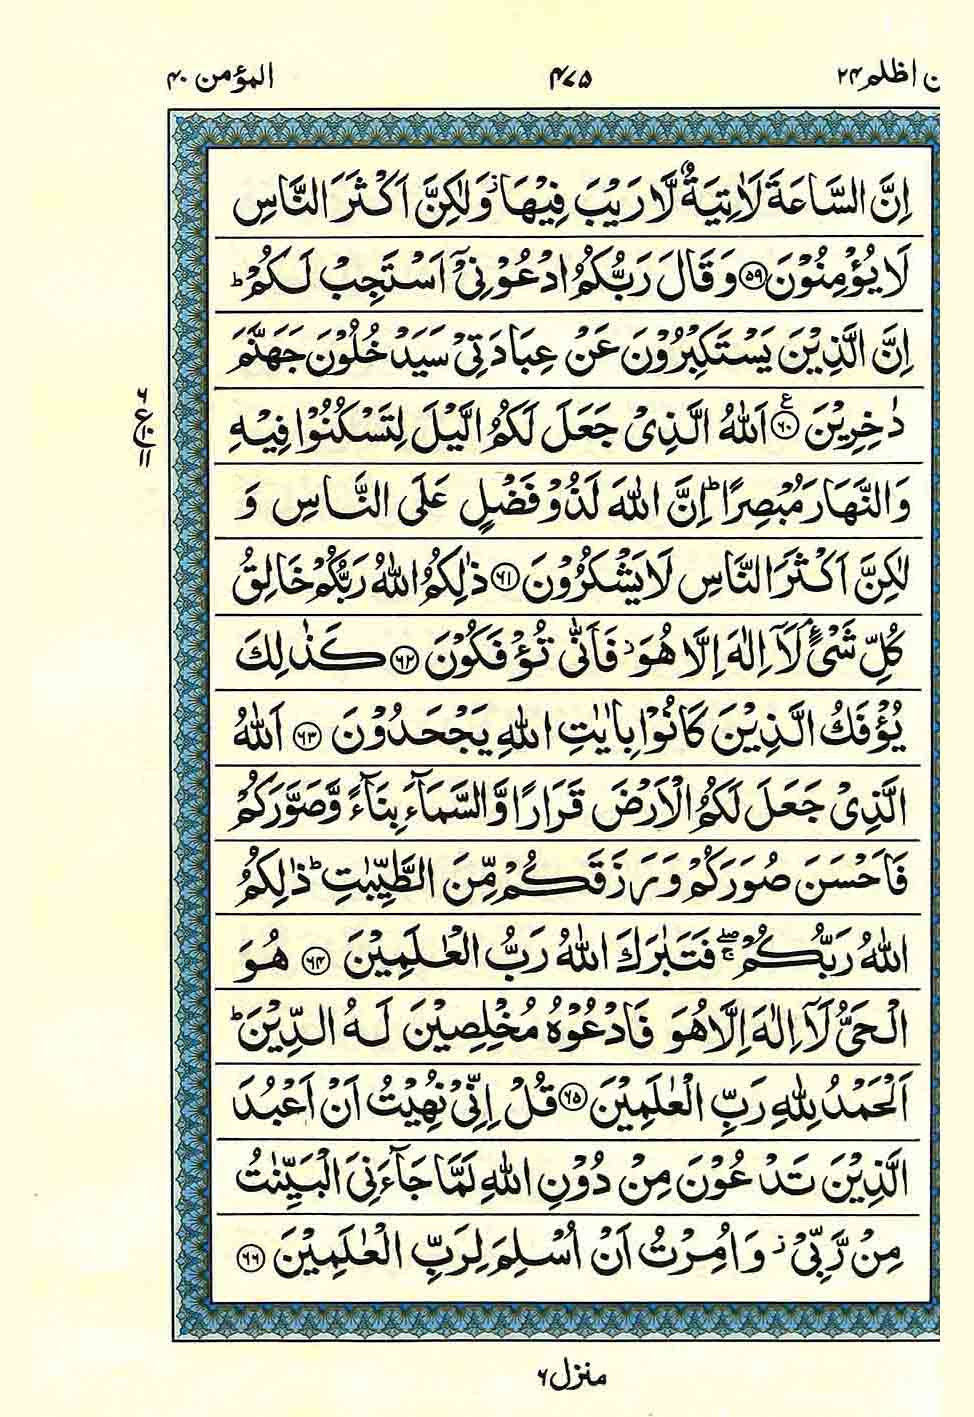 ن اظلم ۲۴
۴۷۵
المؤمن ۴۰
اِنَّ السَّاعَةَ لَاٰتِيَةٌ لَّا رَيْبَ فِيْهَا ۫ وَلٰكِنَّ اَكْثَرَ النَّاسِ
لَا يُؤْمِنُوْنَ ﴿۵۹﴾ وَقَالَ رَبُّكُمُ ادْعُوْنِيْۤ اَسْتَجِبْ لَكُمْ ؕ
اِنَّ الَّذِيْنَ يَسْتَكْبِرُوْنَ عَنْ عِبَادَتِيْ سَيَدْخُلُوْنَ جَهَنَّمَ
دٰخِرِيْنَ ﴿۶۰﴾ ع اَللّٰهُ الَّذِيْ جَعَلَ لَكُمُ الَّيْلَ لِتَسْكُنُوْا فِيْهِ
وَالنَّهَارَ مُبْصِرًا ؕ اِنَّ اللّٰهَ لَذُوْ فَضْلٍ عَلَى النَّاسِ وَ
لٰكِنَّ اَكْثَرَ النَّاسِ لَا يَشْكُرُوْنَ ﴿۶۱﴾ ذٰلِكُمُ اللّٰهُ رَبُّكُمْ خَالِقُ
كُلِّ شَيْءٍ ۘ لَاۤ اِلٰهَ اِلَّا هُوَ ۫ فَاَنّٰى تُؤْفَكُوْنَ ﴿۶۲﴾ كَذٰلِكَ
يُؤْفَكُ الَّذِيْنَ كَانُوْا بِاٰيٰتِ اللّٰهِ يَجْحَدُوْنَ ﴿۶۳﴾ اَللّٰهُ
الَّذِيْ جَعَلَ لَكُمُ الْاَرْضَ قَرَارًا وَّالسَّمَآءَ بِنَآءً وَّصَوَّرَكُمْ
فَاَحْسَنَ صُوَرَكُمْ وَرَزَقَكُمْ مِّنَ الطَّيِّبٰتِ ؕ ذٰلِكُمُ
اللّٰهُ رَبُّكُمْ ۖۚ فَتَبٰرَكَ اللّٰهُ رَبُّ الْعٰلَمِيْنَ ﴿۶۴﴾ هُوَ
الْحَيُّ لَاۤ اِلٰهَ اِلَّا هُوَ فَادْعُوْهُ مُخْلِصِيْنَ لَهُ الدِّيْنَ ؕ
اَلْحَمْدُ لِلّٰهِ رَبِّ الْعٰلَمِيْنَ ﴿۶۵﴾ قُلْ اِنِّيْ نُهِيْتُ اَنْ اَعْبُدَ
الَّذِيْنَ تَدْعُوْنَ مِنْ دُوْنِ اللّٰهِ لَمَّا جَآءَنِيَ الْبَيِّنٰتُ
مِنْ رَّبِّيْ ۫ وَاُمِرْتُ اَنْ اُسْلِمَ لِرَبِّ الْعٰلَمِيْنَ ﴿۶۶﴾
۶
ع ۱۰
۱۱
منزل ۶